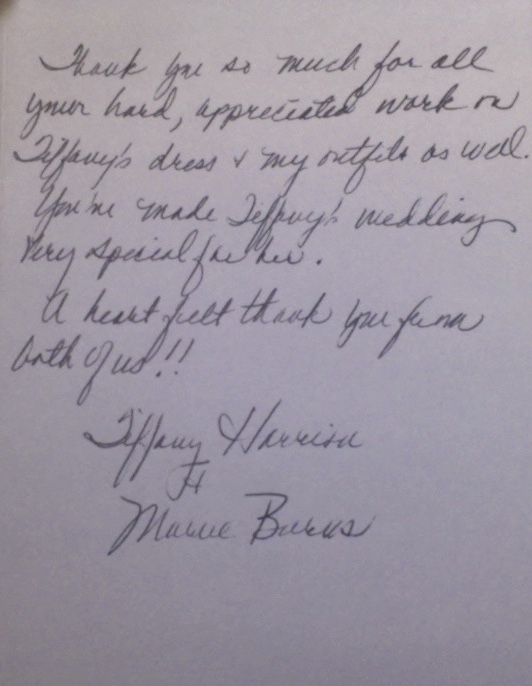 Thank you so much for all
your hard, appreciated work on
Tiffany's dress & my outfits as well.
You've made Tiffany's wedding
very special for her.
A heart felt thank you from
both of us!!
Tiffany Harrison
&
Burns